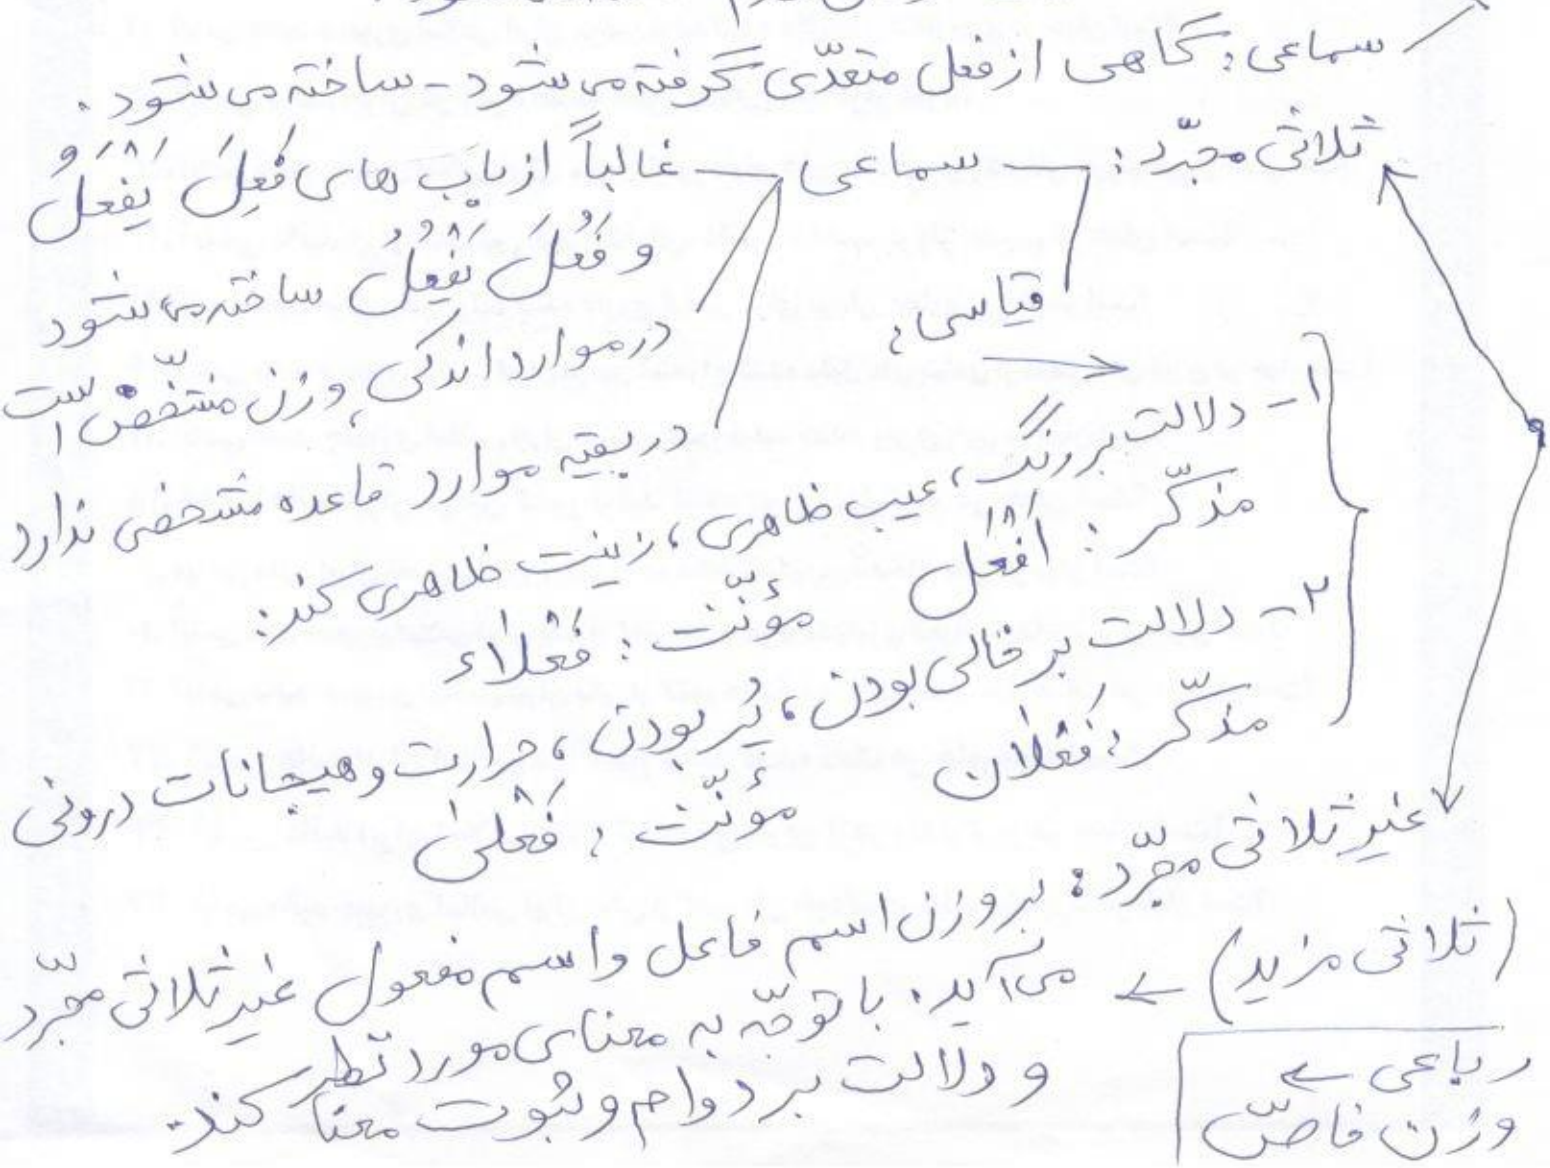 سماعی: گاهی از فعل متعدّی گرفته می شود - ساخته می شود.
ثلاثی مجرّد:
سماعی
غالباً از باب های فَعِلَ یَفْعَلُ
و فَعُلَ یَفْعُلُ ساخته می شود
در موارد اندکی، وزن مشخّص است
در بقیّه موارد قاعده مشخصی ندارد
قیاسی:
۱- دلالت بر رنگ، عیب ظاهری، زینت ظاهری کند:
مذکّر: أَفْعَل مؤنّث: فَعْلاء
۲- دلالت بر خالی بودن، پُر بودن، حرارت و هیجانات درونی
مذکّر: فَعْلان مؤنّث: فَعْلیٰ
غیر ثلاثی مجرّد: بر وزن اسم فاعل و اسم مفعول غیر ثلاثی مجرّد
(ثلاثی مزید) ← می آید. با توجّه به معنای مورد نظر
و دلالت بر دوام و ثبوت معنا کند.
رباعی ←
وزن خاصّ